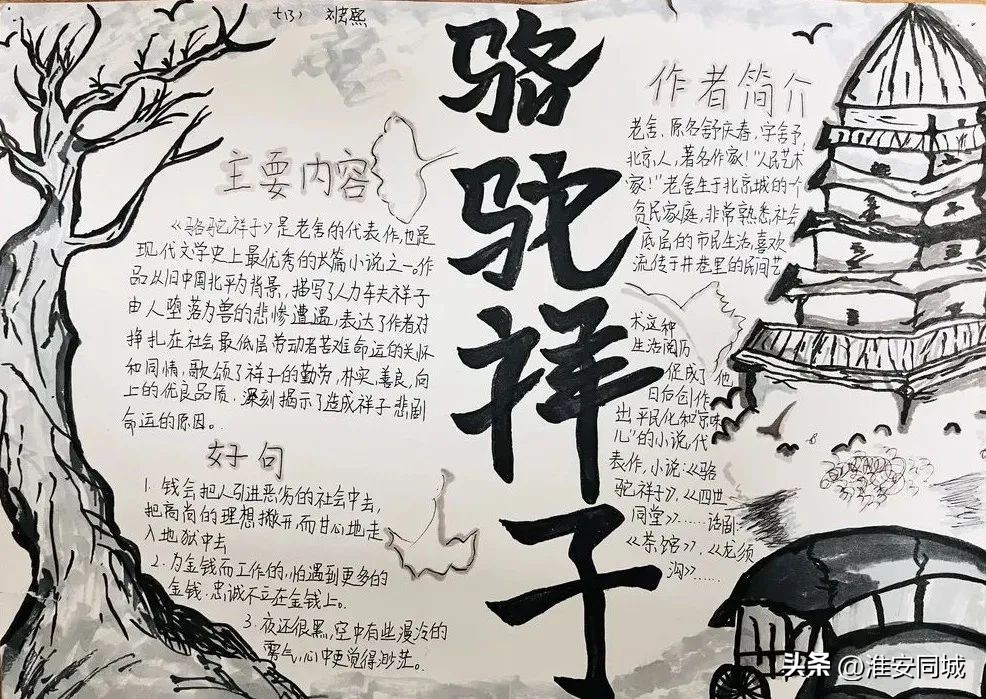 七(3) 刘宏熙
骆驼祥子
主要内容
《骆驼祥子》是老舍的代表作,也是
现代文学史上最优秀的长篇小说之一。作
品从旧中国北平为背景,描写了人力车夫祥子
由人堕落为兽的悲惨遭遇,表达了作者对
挣扎在社会最低层劳动者苦难命运的关怀
和同情,歌颂了祥子的勤劳,朴实,善良,向
上的优良品质,深刻揭示了造成祥子悲剧
命运的原因。
好句
1. 钱会把人引进恶劣的社会中去,
把高尚的理想撇开,而甘心地走
入地狱中去
2. 为金钱而工作的,怕遇到更多的
金钱,忠诚不立在金钱上。
3. 夜还很黑,空中有些漫冷的
雾气,心中更觉得渺茫。
作者简介
老舍、原名舒庆春,字舍予,
北京人,著名作家!"人民艺术
家!"老舍生于北京城的一个
贫民家庭,非常熟悉社会
底层的市民生活,喜欢
流传于井巷里的民间艺
术这种
生活阅历
促成了他
日后创作
出平民化和"京味
儿"的小说,代
表作,小说:《骆
驼祥子》,《四世
同堂》……话剧:
《茶馆》,《龙须
沟》……
头条 @淮安同城